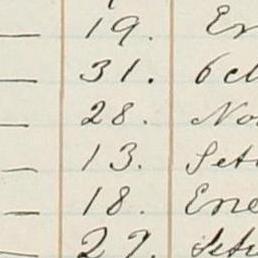 — 19. En
— 31. Oct
— 28. No
— 13. Set
— 18. Ene
— 27. Set